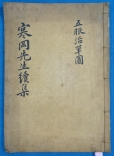 寒岡先生續集
五服沿革圖